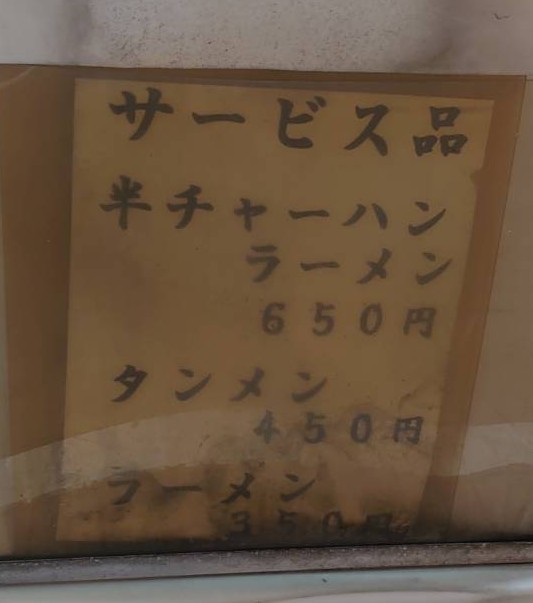 サービス品
半チャーハン
ラーメン
650円
タンメン
450円
ラーメン
350円